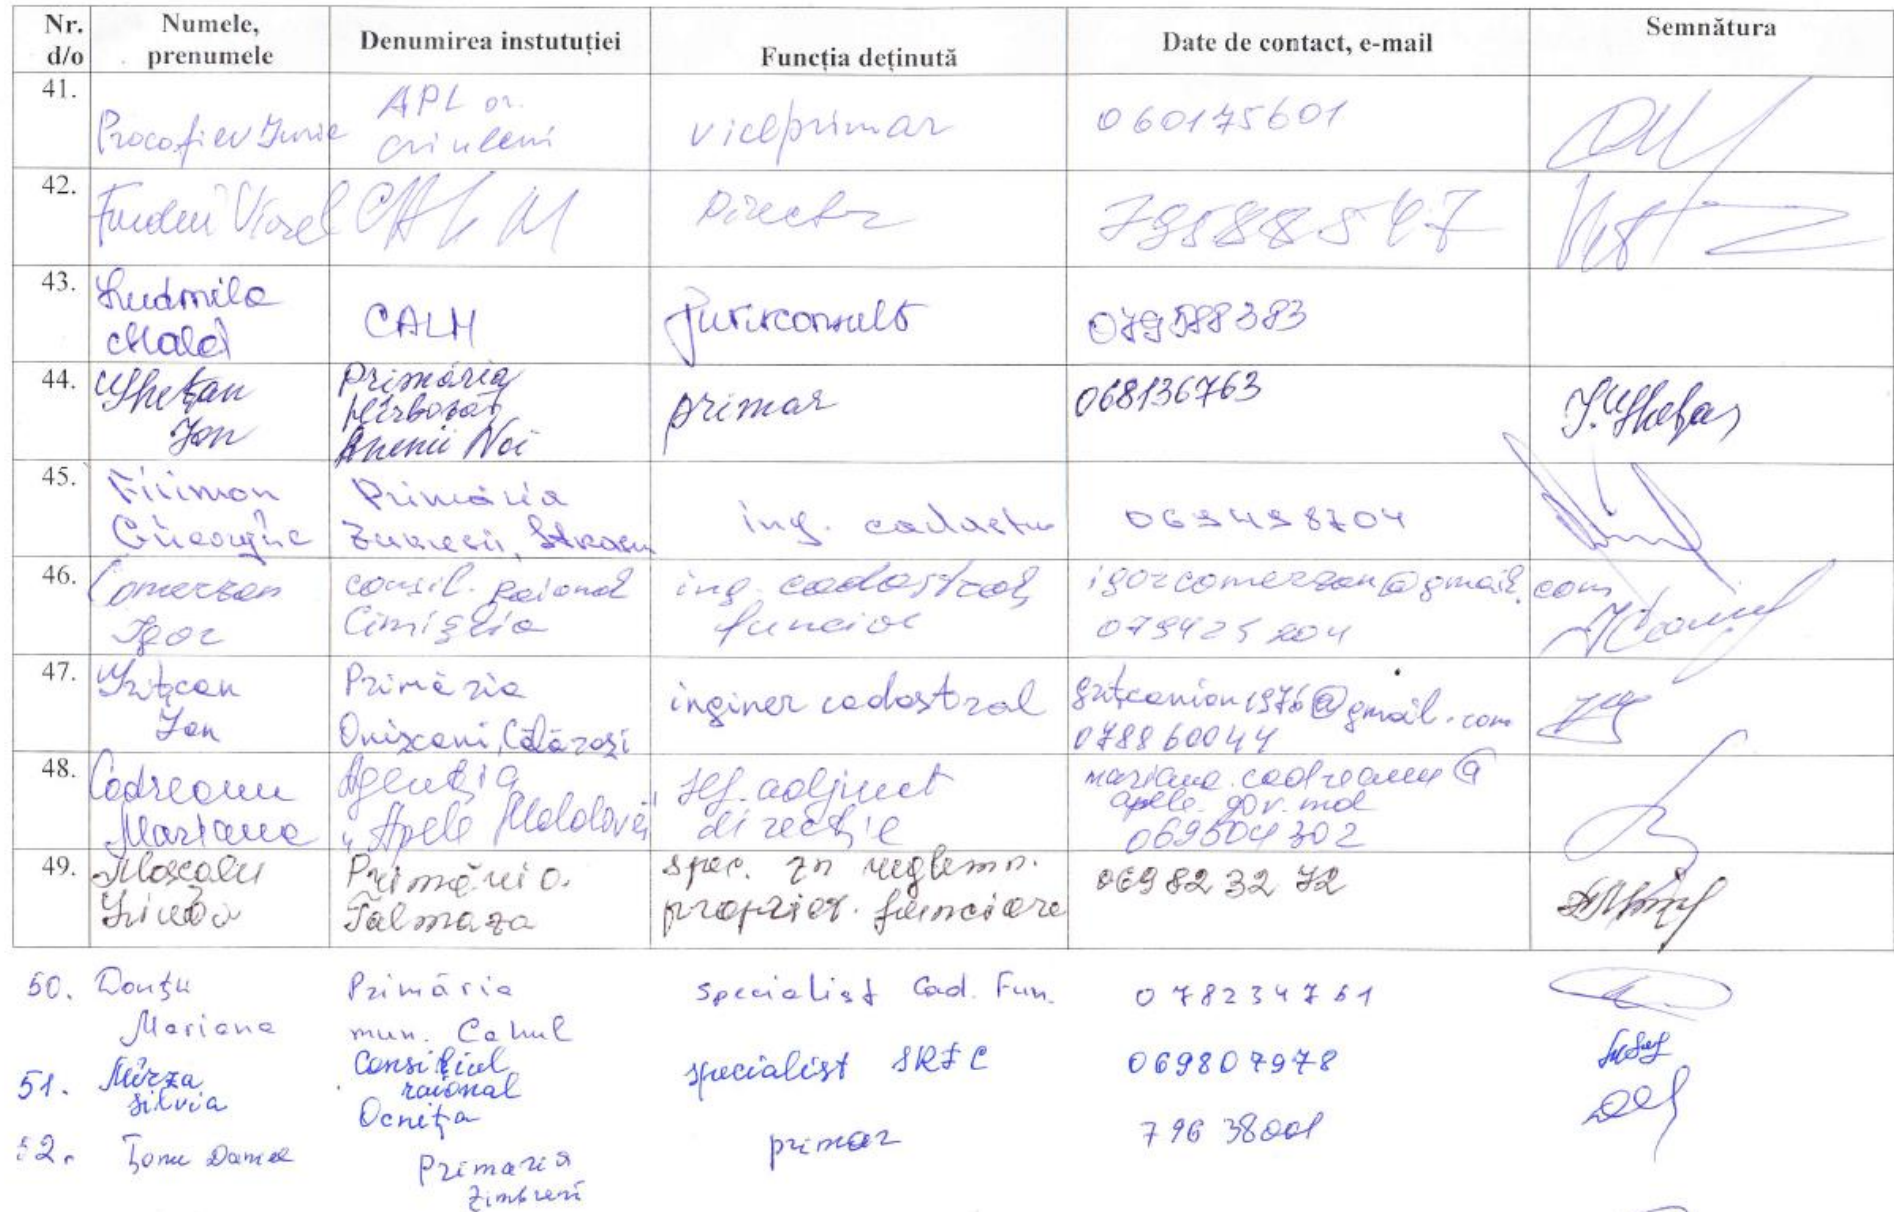 Nr. d/o Numele, prenumele Denumirea instutuției Funcția deținută Date de contact, e-mail Semnătura
41. Procofiev Iurie APL or. Criuleni viceprimar 060175601
42. Viorel CALM Director 79588547
43. Ludmila CALM Jurisconsult 079588383
44. Ion Primăria Hîrbovăț Anenii Noi primar 068136763
45. Filimon Gheorghe Primăria Zubrești, ing. cadastru 069498704
46. Comerzan Igor consil. raional Cimișlia ing. cadastral, funciar igorcomerzan@gmail.com 079425204
47. Grițcan Ion Primăria Onișcani, Călărași inginer cadastral gritcanion1976@gmail.com 078860044
48. Codreanu Mariana Agenția "Apele Moldovei" șef. adjunct direcție mariana.codreanu@apele.gov.md 069504302
49. Moscalu Primăria Talmaza spec. în reglem. propriet. funciare 069823272
50. Donțu Mariana Primăria mun. Cahul specialist Cad. Fun. 078234761
51. Mîrza Silvia Consiliul raional Ocnița specialist SRFC 069807978
52. Țonu Primaria Zimbreni primar 79638001